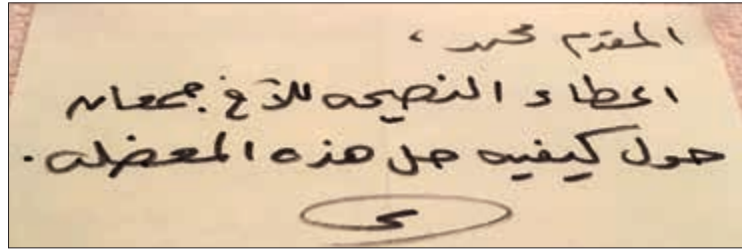 المقدم محمد ،
اعطاء النصيحه للأخ جمعان
حول كيفيه حل هذه المعضله .